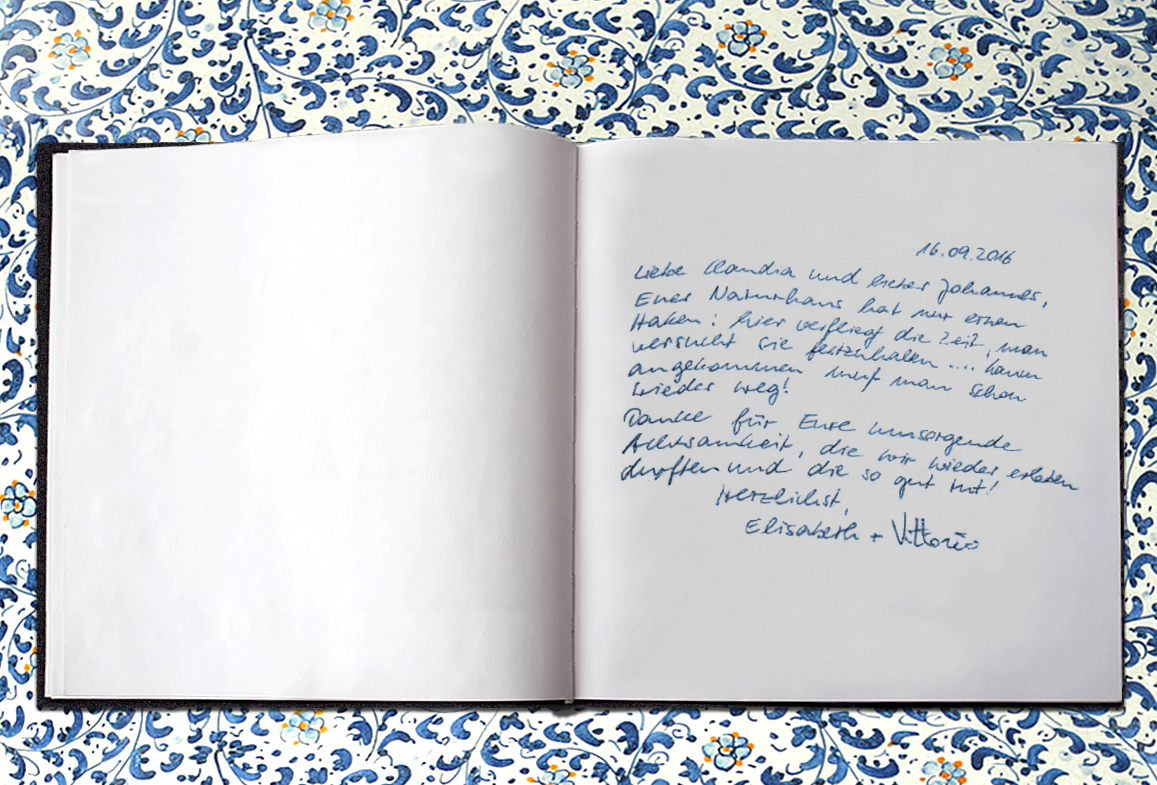 16.09.2016
Liebe Claudia und lieber Johannes,
Euer Naturhaus hat nur einen
Haken: hier verfliegt die Zeit, man
versucht sie festzuhalten .... kaum
angekommen muß man schon
wieder weg!
Danke für Eure umsorgende
Achtsamkeit, die wir wieder erleben
durften und die so gut tut!
Herzlichst,
Elisabeth + Vittorio